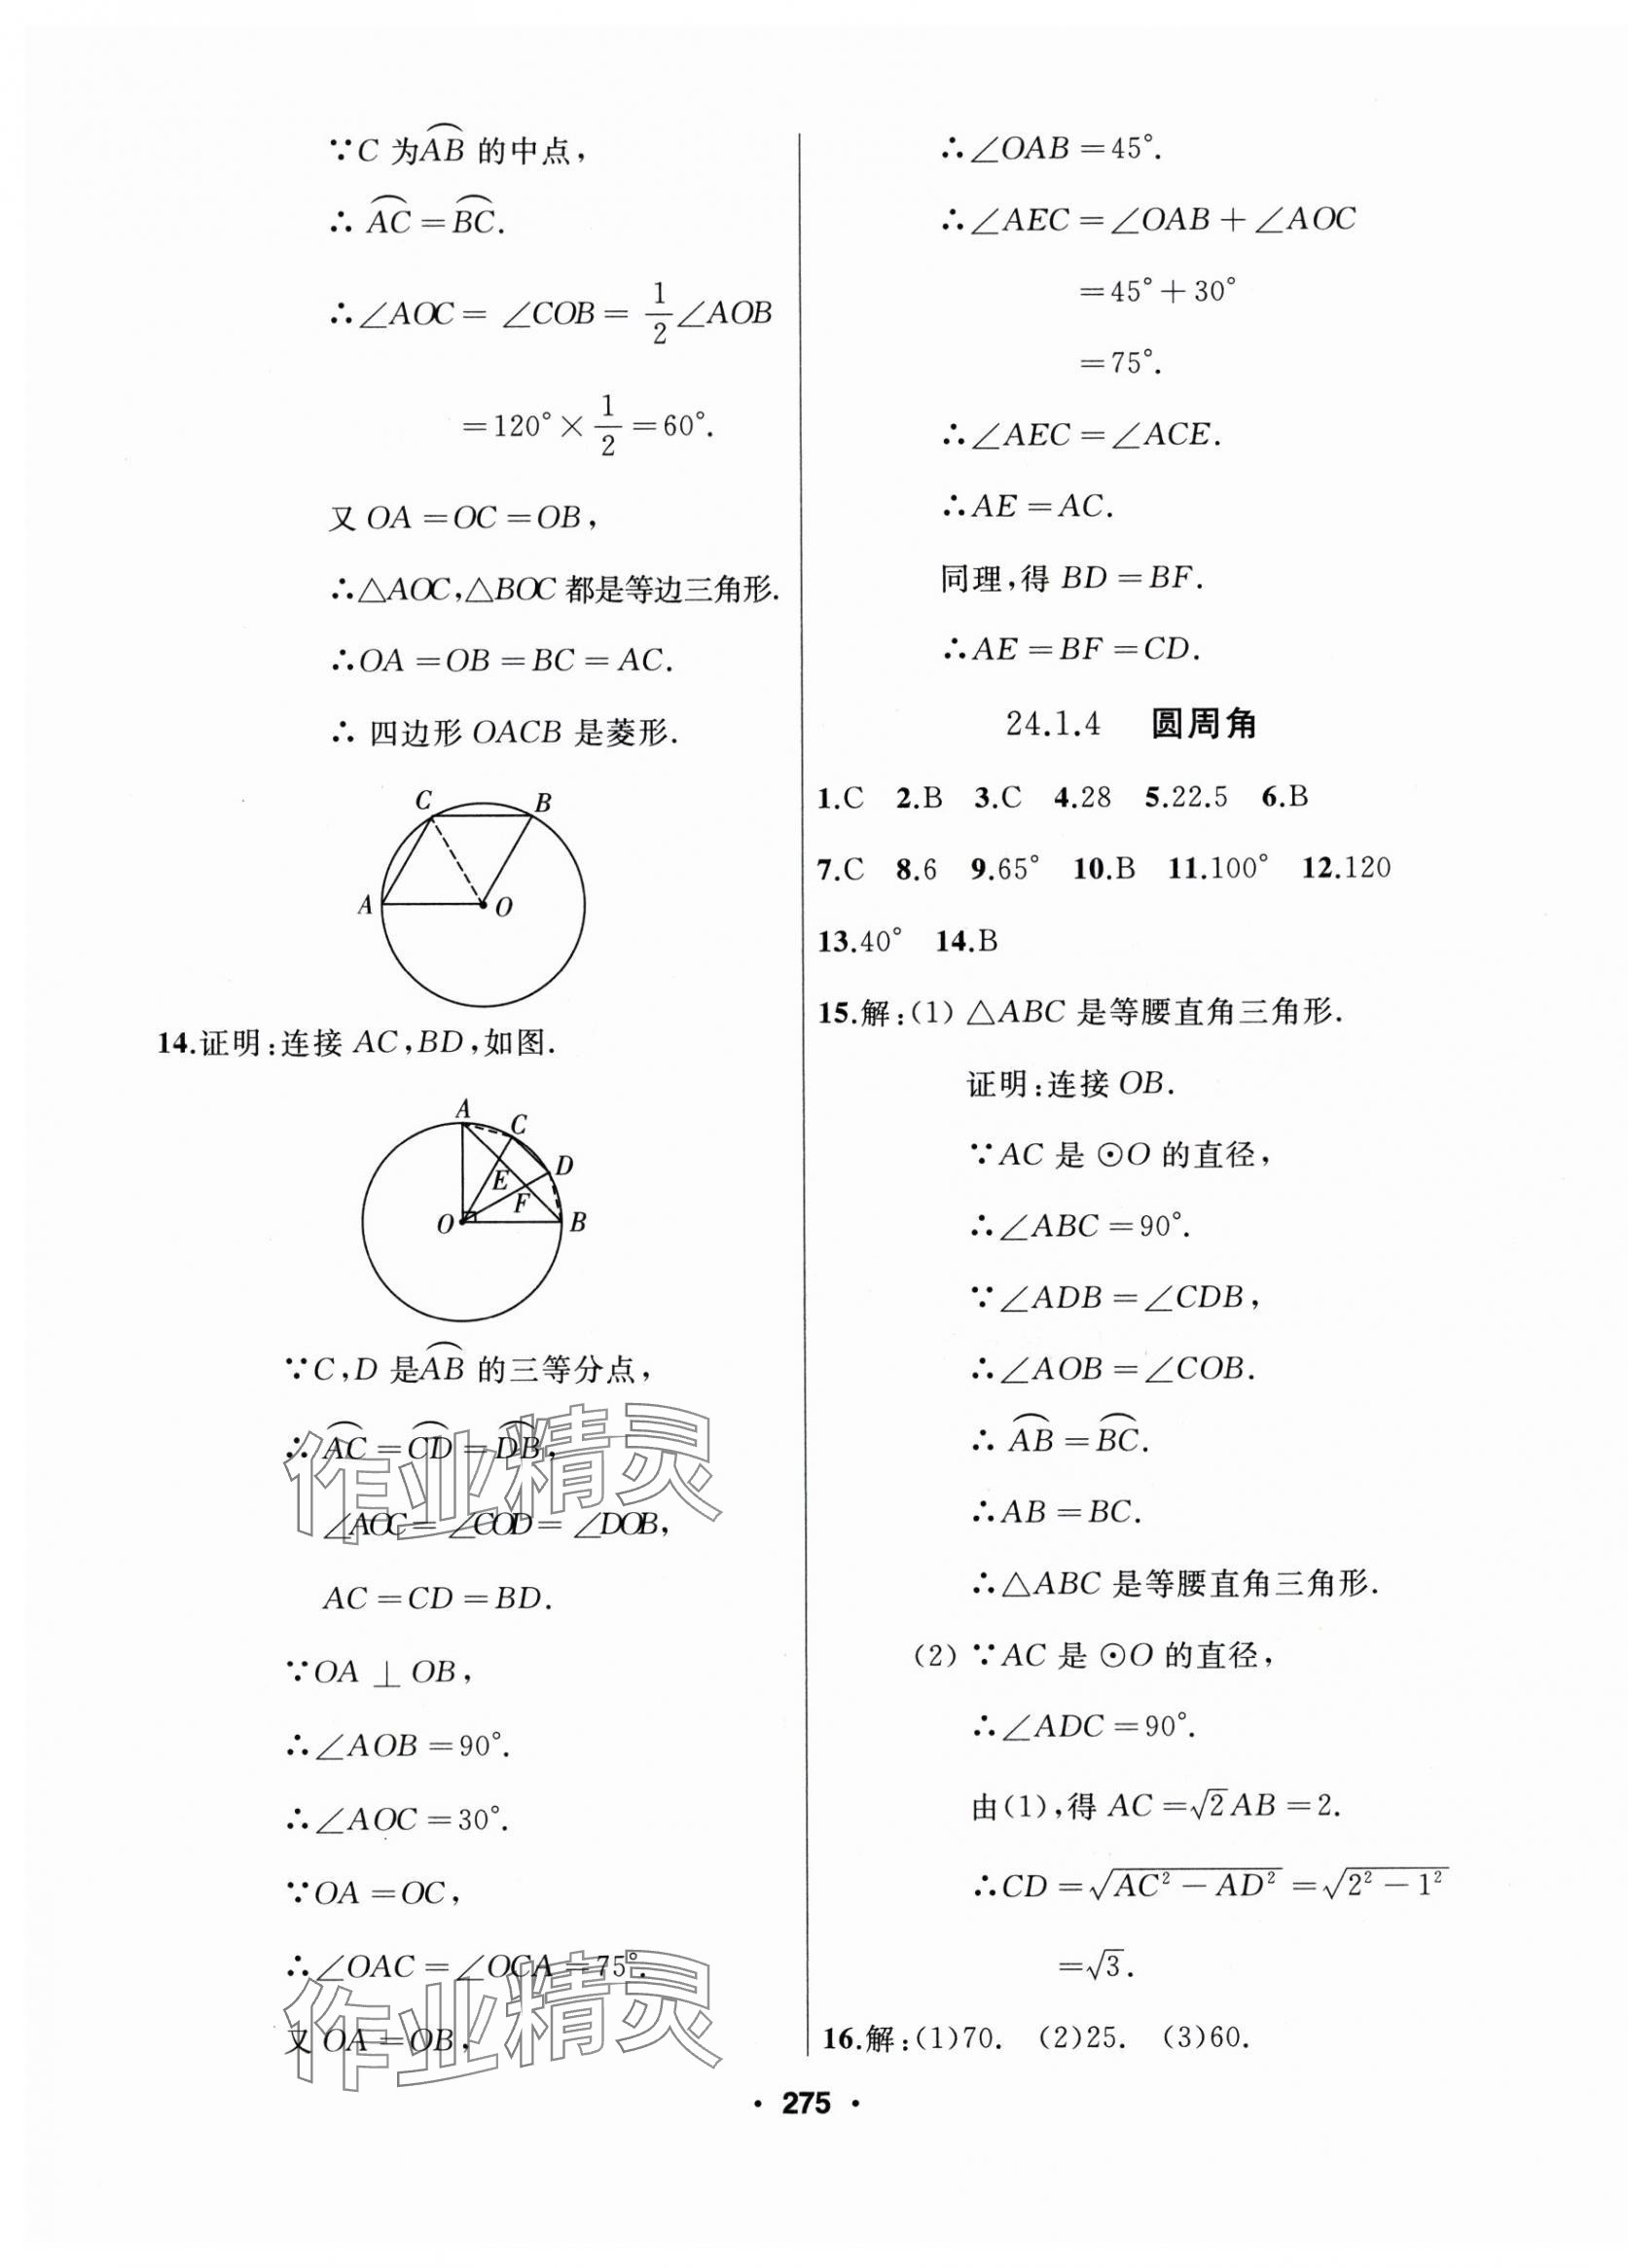 ∵C 为⌒AB 的中点，
∴ ⌒AC＝⌒BC.
∴∠AOC＝∠COB＝1/2∠AOB
＝120°×1/2＝60°.
又 OA＝OC＝OB，
∴△AOC，△BOC 都是等边三角形.
∴OA＝OB＝BC＝AC.
∴ 四边形 OACB 是菱形.
C
B
A
O
14.证明：连接 AC，BD，如图.
A
C
D
E
F
O
B
∵C，D 是⌒AB 的三等分点，
∴ ⌒AC＝⌒CD＝⌒DB，
∠AOC＝∠COD＝∠DOB，
AC＝CD＝BD.
∵OA⊥OB，
∴∠AOB＝90°.
∴∠AOC＝30°.
∵OA＝OC，
∴∠OAC＝∠OCA＝75°.
又 OA＝OB，
作业精灵
作业精灵
∴∠OAB＝45°.
∴∠AEC＝∠OAB＋∠AOC
＝45°＋30°
＝75°.
∴∠AEC＝∠ACE.
∴AE＝AC.
同理，得 BD＝BF.
∴AE＝BF＝CD.
24.1.4 圆周角
1.C 2.B 3.C 4.28 5.22.5 6.B
7.C 8.6 9.65° 10.B 11.100° 12.120
13.40° 14.B
15.解：(1) △ABC 是等腰直角三角形.
证明：连接 OB.
∵AC 是 ⊙O 的直径，
∴∠ABC＝90°.
∵∠ADB＝∠CDB，
∴∠AOB＝∠COB.
∴ ⌒AB＝⌒BC.
∴AB＝BC.
∴△ABC 是等腰直角三角形.
(2) ∵AC 是 ⊙O 的直径，
∴∠ADC＝90°.
由(1)，得 AC＝√2AB＝2.
∴CD＝√(AC²－AD²)＝√(2²－1²)
＝√3.
16.解：(1)70. (2)25. (3)60.
· 275 ·